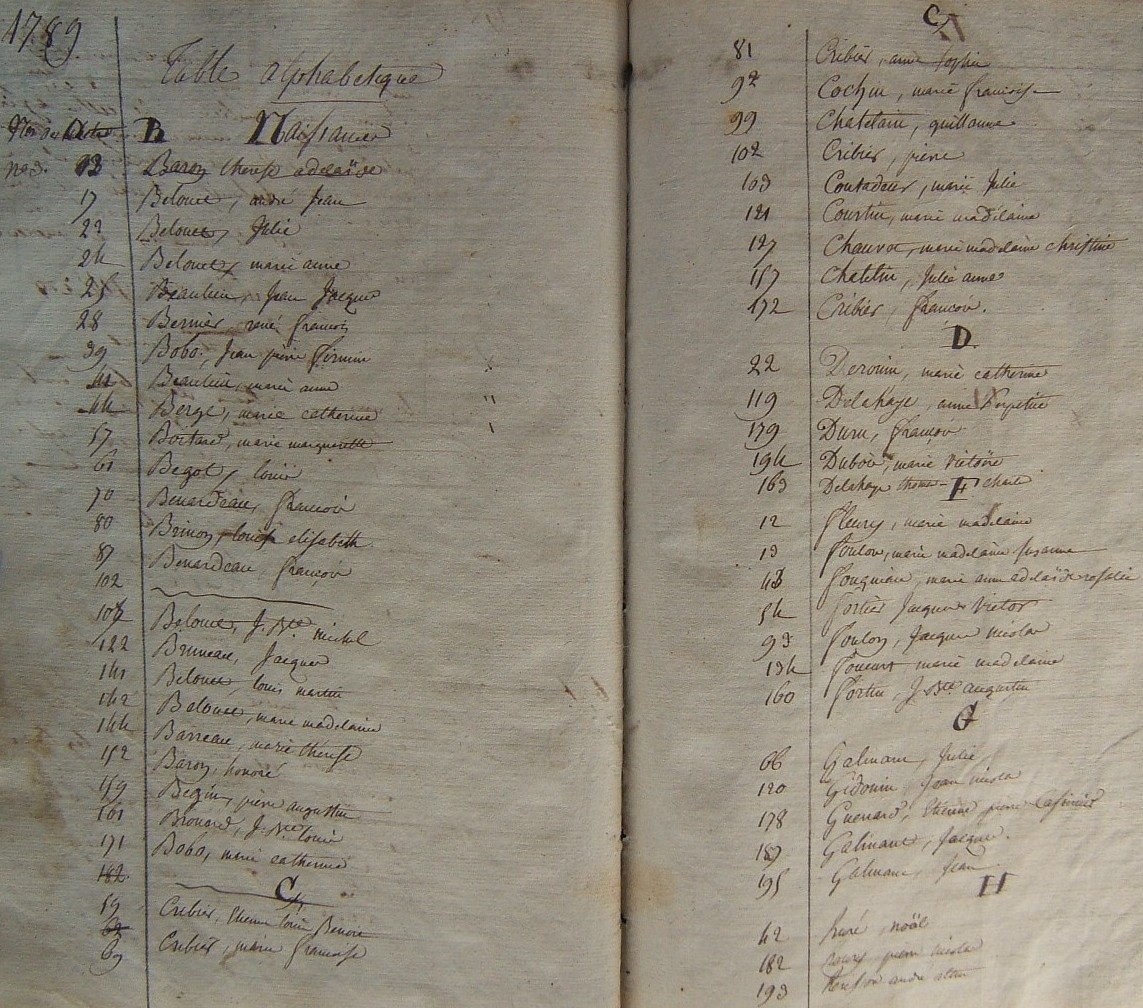 1789
Table alphabetique
B Naissances
no 3. 13 Baron therese adelaïde
17 Belouet, andré Jean
22 Belouet, Julie
24 Belouet, marie anne
25 Beaulieu, Jean Jacques
28 Bernier, rené françois
39 Bobo, Jean pierre firmin
41 Beaulieu, marie anne
44 Berge, marie catherine
57 Boitard, marie marguerite
61 Begot, louis
70 Benardeau, françois
80 Brinon, louise elisabeth
87 Benardeau, françois
102
107 Belouet, J. Bte michel
122 Bruneau, Jacques
141 Belouet, louis martin
142 Belouet, marie madelaine
144 Barreau, marie thérese
152 Baron, honoré
159 Begin, pierre augustin
161 Brouard, J. Bte louis
171 Bobo, marie catherine
182
C
59 Cribier, Etienne louis
62
69 Cribier, marie françoise
C
81 Cribier, anne sophie
92 Cochin, marie françoise
99 Chatelain, guillaume
102 Cribier, pierre
103 Coutadeur, marie Julie
121 Courtin, marie madelaine
127 Chauvot, marie madelaine christine
157 Chatelin, Julie anne
172 Cribier, françois.
D.
22 Derouin, marie catherine
119 Delahaye, anne Perpetue
179 Duru, françois
194 Dubois, marie Victoire
163 Delahaye thomas charles
F
12 fleury, marie madelaine
13 foulon, marie madelaine susanne
48 marie anne adelaïde rosalie
54 fortier Jacques Victor
93 foulon, Jacques nicolas
134 marie madelaine
160 fortin, J. Bte augustin
G
66 Galinant, Julie
120 Gidouin, Jean nicolas
178 Guenard, Etienne pierre Casimir
187 Galinant, Jacques.
195 Galinant, Jean
H
42 huré, noël
182 pierre nicolas
193 andre